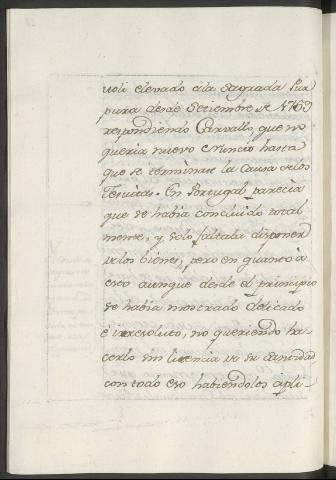 uoli elevado ála Sagrada Pur
pura desde Setiembre de 1769
respondiendo Carvallo, que no
queria nuevo Nuncio hasta
que se terminase la Causa delos
Jesuitas. En Portugal parecia
que se habia concluido total
mente, y solo faltaba disponer
delos bienes, pero en quanto à
esto aunque desde el principio
se habia mostrado delicado
è irresoluto, no queriendo ha-
cerlo sin licencia de su Santidad
con todo eso habiendolos apli-